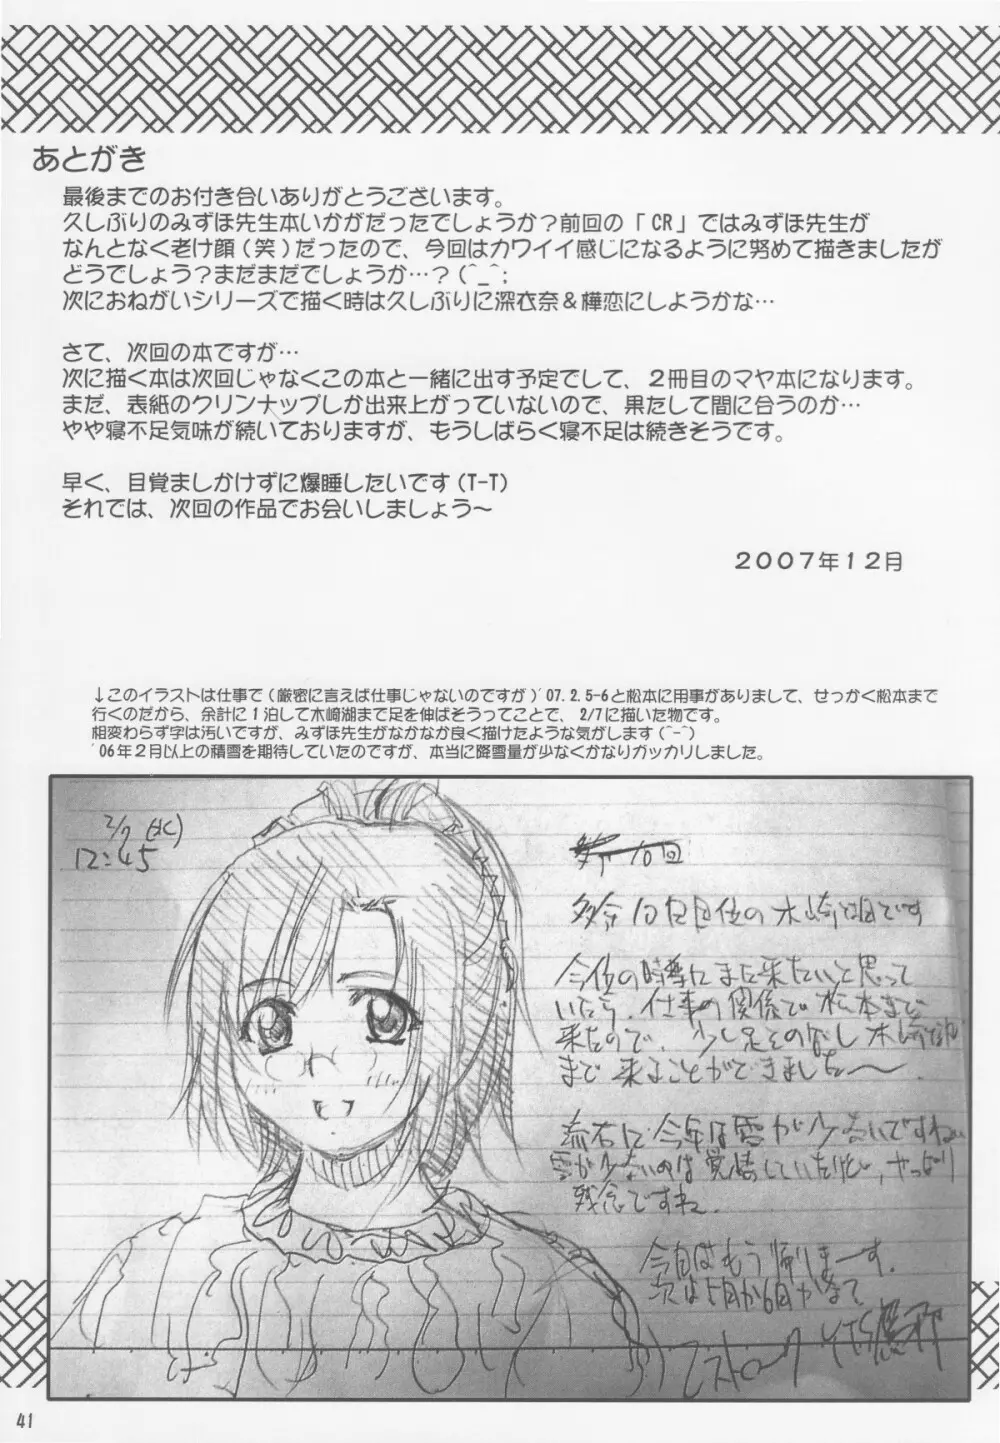 あとがき
最後までのお付き合いありがとうございます。
久しぶりのみずほ先生本いかがだったでしょうか？前回の「CR」ではみずほ先生が
なんとなく老け顔(笑)だったので、今回はカワイイ感じになるように努めて描きましたが
どうでしょう？まだまだでしょうか…？(^_^;
次におねがいシリーズで描く時は久しぶりに深衣奈＆樺恋にしようかな…
さて、次回の本ですが…
次に描く本は次回じゃなくこの本と一緒に出す予定でして、２冊目のマヤ本になります。
まだ、表紙のクリンナップしか出来上がっていないので、果たして間に合うのか…
やや寝不足気味が続いておりますが、もうしばらく寝不足は続きそうです。
早く、目覚ましかけずに爆睡したいです(T-T)
それでは、次回の作品でお会いしましょう〜
２００７年１２月
↓このイラストは仕事で(厳密に言えば仕事じゃないのですが)'07.2.5-6と松本に用事がありまして、せっかく松本まで
行くのだから、余計に１泊して木崎湖まで足を伸ばそうってことで、2/7に描いた物です。
相変わらず字は汚いですが、みずほ先生がなかなか良く描けたような気がします(^-^)
'06年２月以上の積雪を期待していたのですが、本当に降雪量が少なくかなりガッカリしました。
2/7(水)
12:45
10回
多分10回目位の木崎湖です
今位の時季にまた来たいと思って
いたら、仕事の関係で松本まで
来たので、少し足をのばし木崎湖
まで来ることができました〜.
流石に今年は雪が少ないですねぃ
雪が少ないのは覚悟していたけど、やっぱり
残念ですね.
今日はもう帰りまーす.
次は5月か6月かなて
41